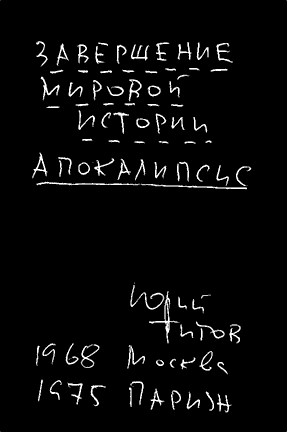 ЗАВЕРШЕНИЕ
МИРОВОЙ
ИСТОРИИ
АПОКАЛИПСИС
ЮРИЙ
ТИТОВ
1968 МОСКВА
1975 ПАРИЖ